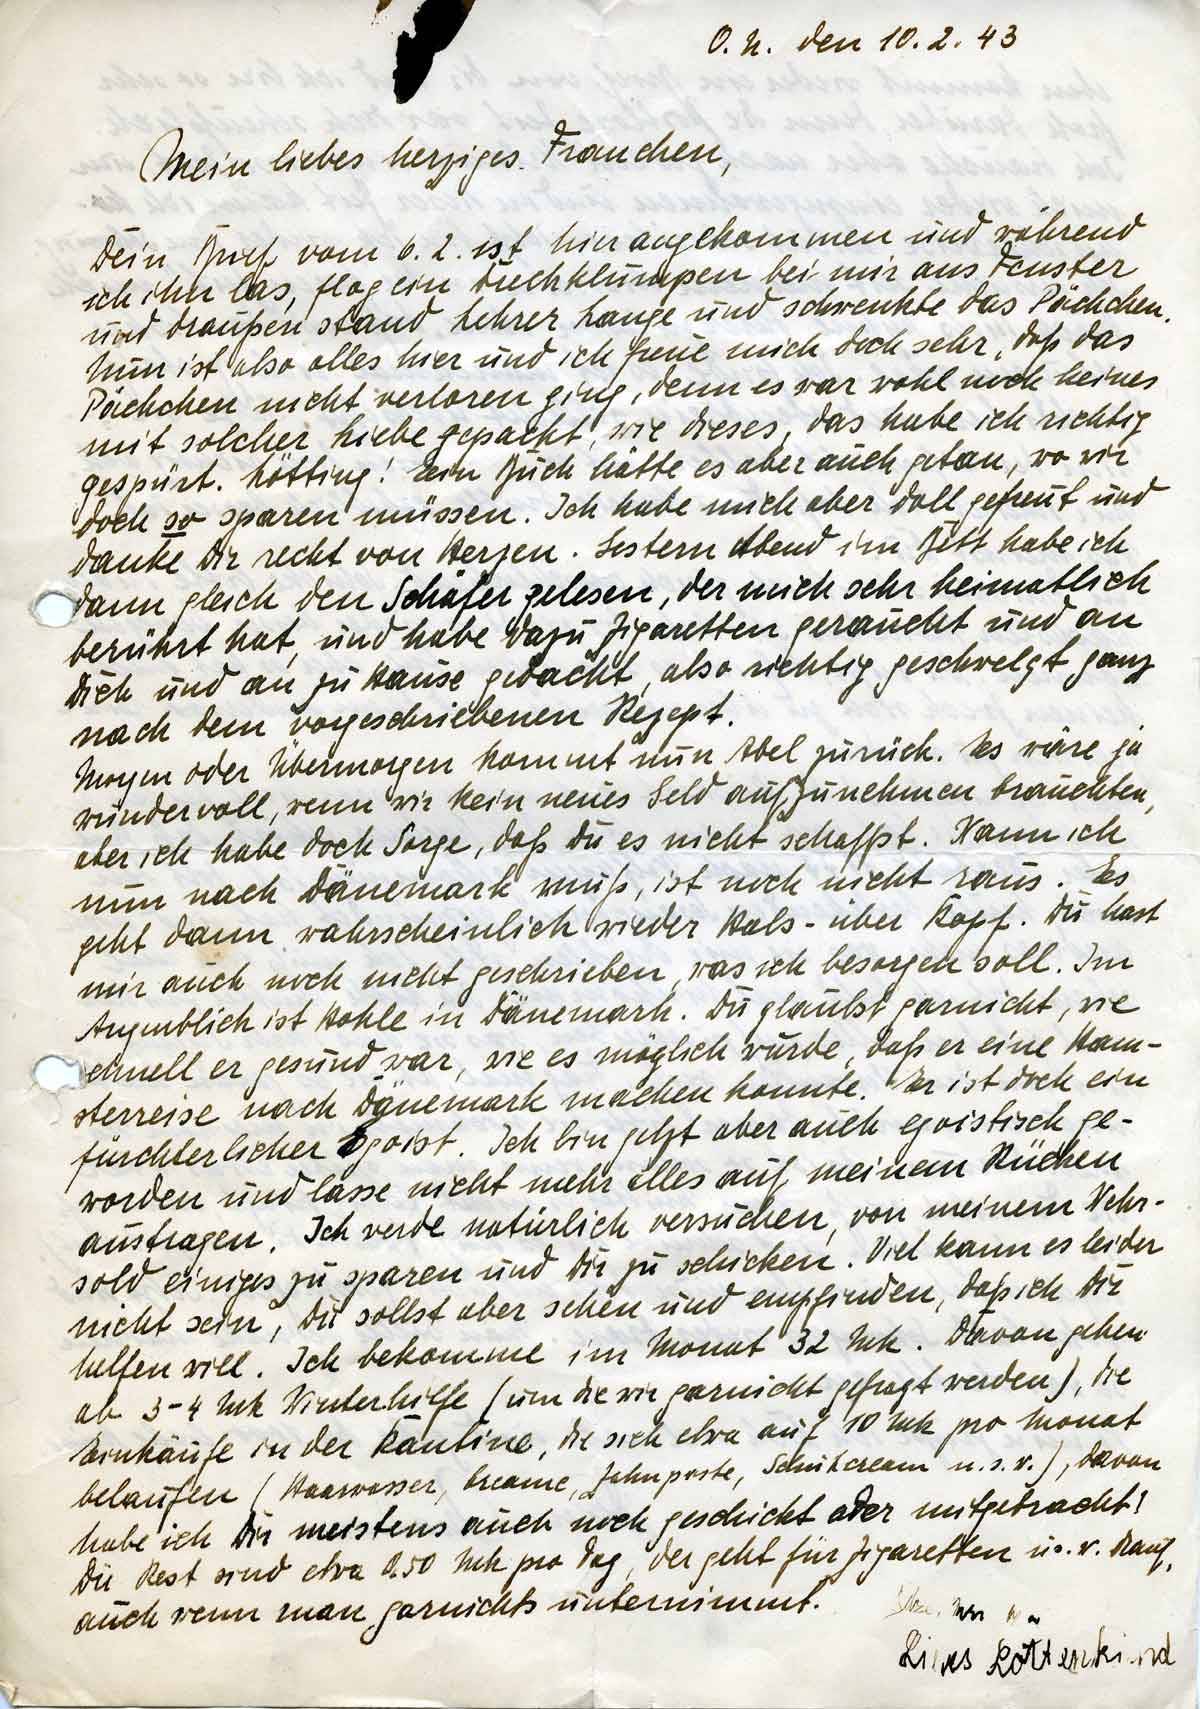 O.U. den 10.2.43
Mein liebes herziges Frauchen,
Dein Brief vom 6.2. ist hier angekommen und während
ich ihn las, flog ein Dreckklumpen bei mir ans Fenster
und draußen stand Lehrer Lange und schwenkte das Päckchen.
Nun ist also alles hier und ich freue mich doch sehr, daß das
Päckchen nicht verloren ging, denn es war wohl noch keines
mit solcher Liebe gepackt, wie dieses, das habe ich richtig
gespürt. Götting! Ein Buch hätte es aber auch getan, wo wir
doch so sparen müssen. Ich habe mich aber doll gefreut und
danke Dir recht von Herzen. Gestern Abend im Bett habe ich
dann gleich den Schäfer gelesen, der mich sehr heimatlich
berührt hat, und habe dazu Zigaretten geraucht und an
Dich und an zu Hause gedacht, also richtig geschwelgt ganz
nach dem vorgeschriebenen Rezept.
Morgen oder Übermorgen kommt nun Abel zurück. Es wäre ja
wundervoll, wenn wir kein neues Geld aufzunehmen brauchten,
aber ich habe doch Sorge, daß Du es nicht schaffst. Wann ich
nun nach Dänemark muß, ist noch nicht raus. Es
geht dann wahrscheinlich wieder Hals-über Kopf. Du hast
mir auch noch nicht geschrieben, was ich besorgen soll. Im
Augenblick ist Kohle in Dänemark. Du glaubst garnicht, wie
schnell er gesund war, wie es möglich wurde, daß er eine Ham-
sterreise nach Dänemark machen konnte. Er ist doch ein
fürchterlicher Egoist. Ich bin jetzt aber auch egoistisch ge-
worden und lasse nicht mehr alles auf meinem Rücken
austragen. Ich werde natürlich versuchen, von meinem Wehr-
sold einiges zu sparen und Dir zu schicken. Viel kann es leider
nicht sein, Du sollst aber sehen und empfinden, daß ich Dir
helfen will. Ich bekomme im Monat 32 Mk. Davon gehen
ab 3-4 Mk Winterhilfe (um die wir garnicht gefragt werden), die
Einkäufe in der Kantine, die sich etwa auf 10 Mk pro Monat
belaufen (Haarwasser, Creame, Zahnpaste, Schuhcream u.s.w.), davon
habe ich Dir meistens auch noch geschickt oder mitgebracht!
Die Rest sind etwa 0.50 Mk pro Tag, der geht für Zigaretten u.s.w. drauf,
auch wenn man garnichts unternimmt.